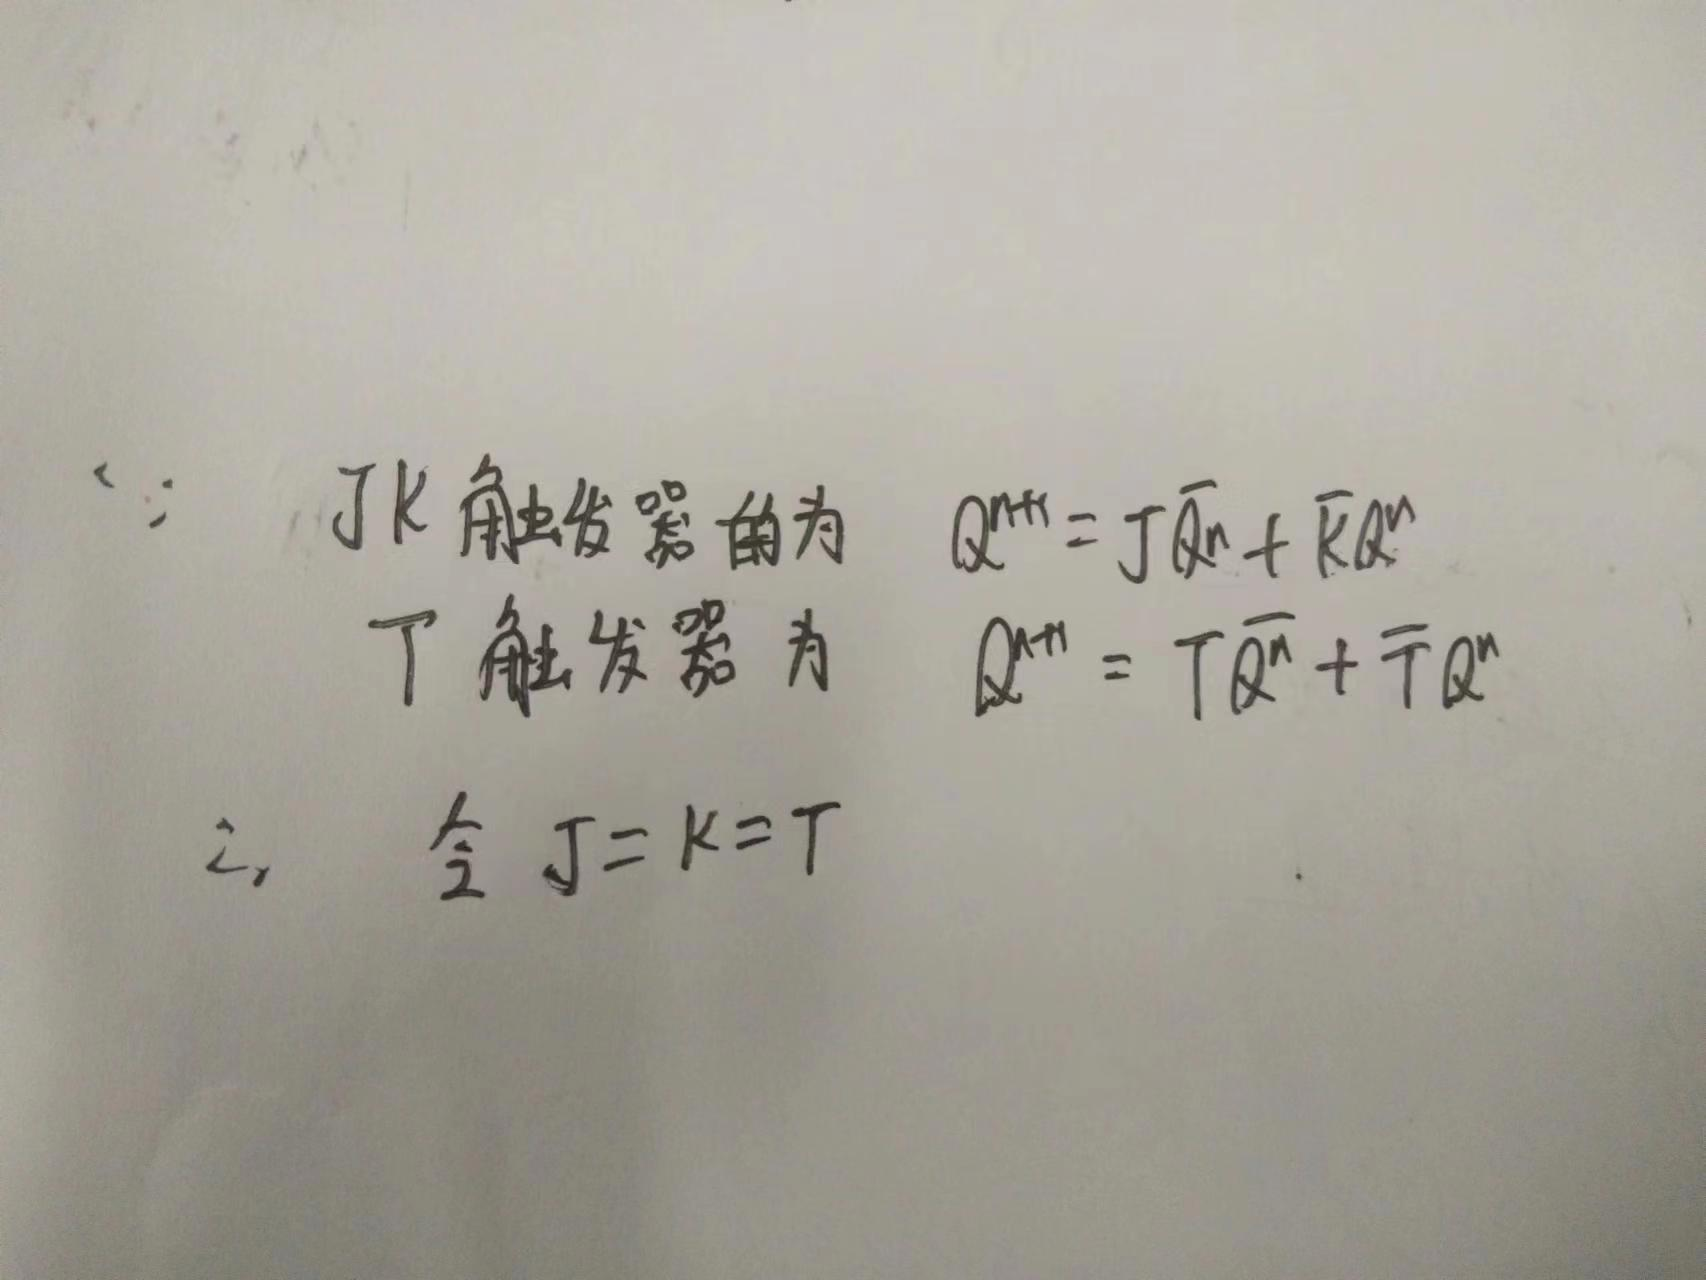 ∵ JK触发器的为 Qⁿ⁺¹ = JQ̅n + K̅Qⁿ
T触发器为 Qⁿ⁺¹ = TQ̅ⁿ + T̅Qⁿ
∴ 令 J = K = T